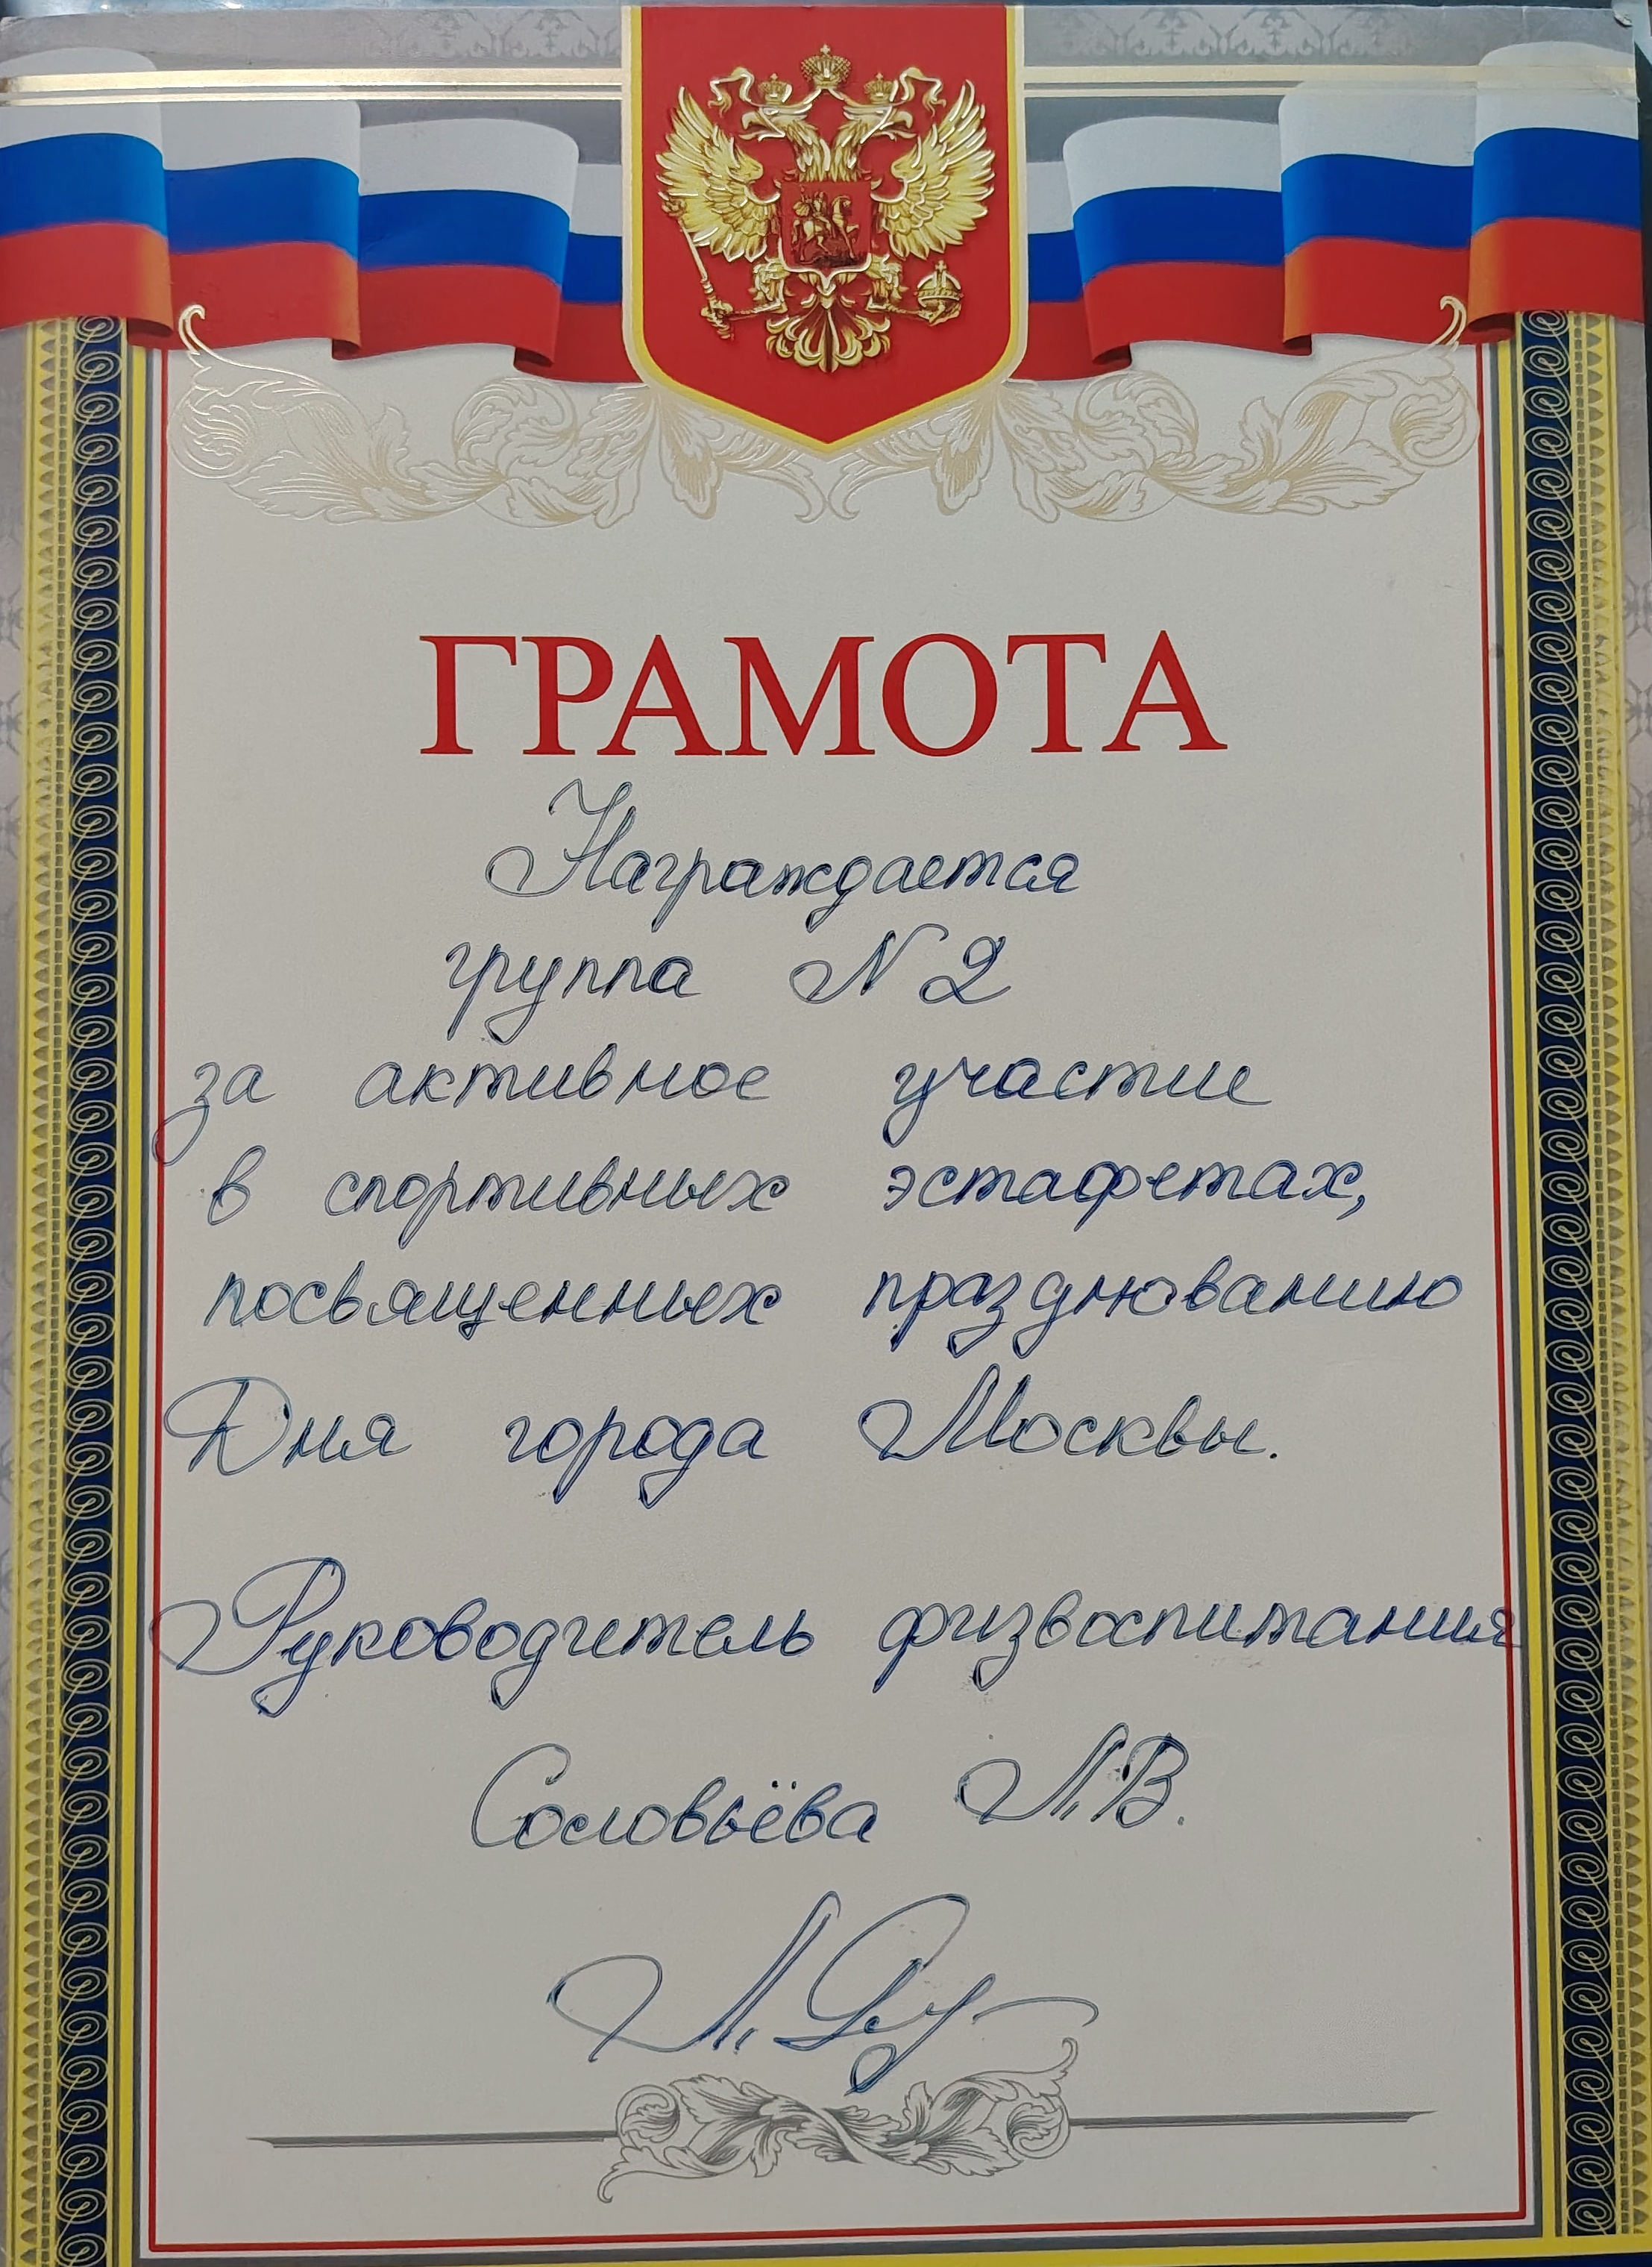 ГРАМОТА
Награждается
группа N 2
за активное участие
в спортивных эстафетах,
посвященных празднованию
Дня города Москвы.
Руководитель физвоспитания
Соловьёва Л.В.